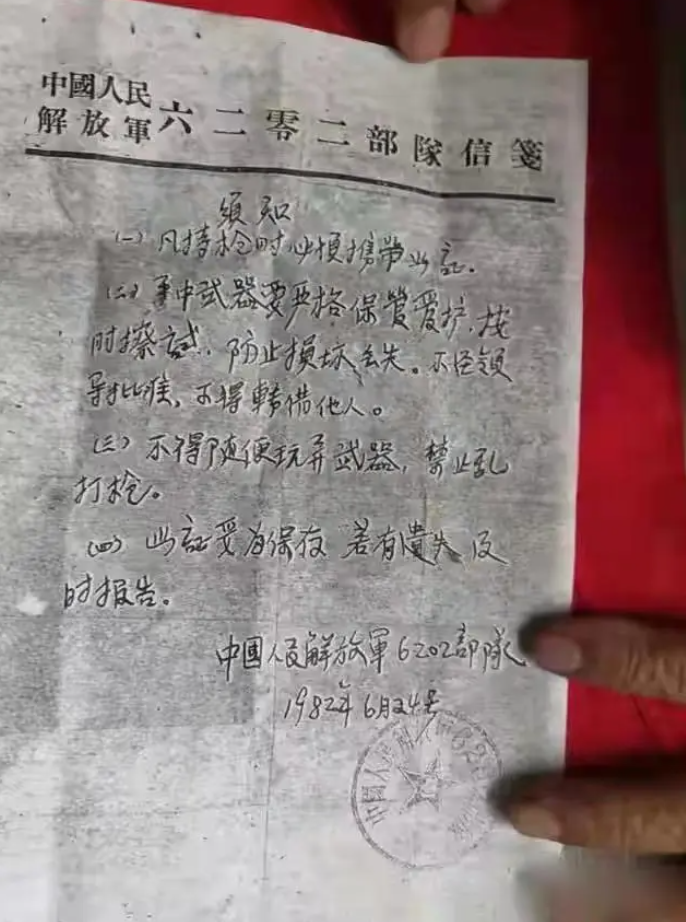 中國人民
解放軍六二零二部隊信箋
须知
(一) 凡持枪时必须携带此证.
(二) 手中武器要严格保管爱护.按
时擦试.防止损坏丢失。不经领
导批准,不得轉借他人。
(三) 不得随便玩弄武器,禁止乱
打枪。
(四) 此証要为保存 若有遺失 及
时报告。
中國人民解放軍6202部隊
1982年6月24号
中國人民